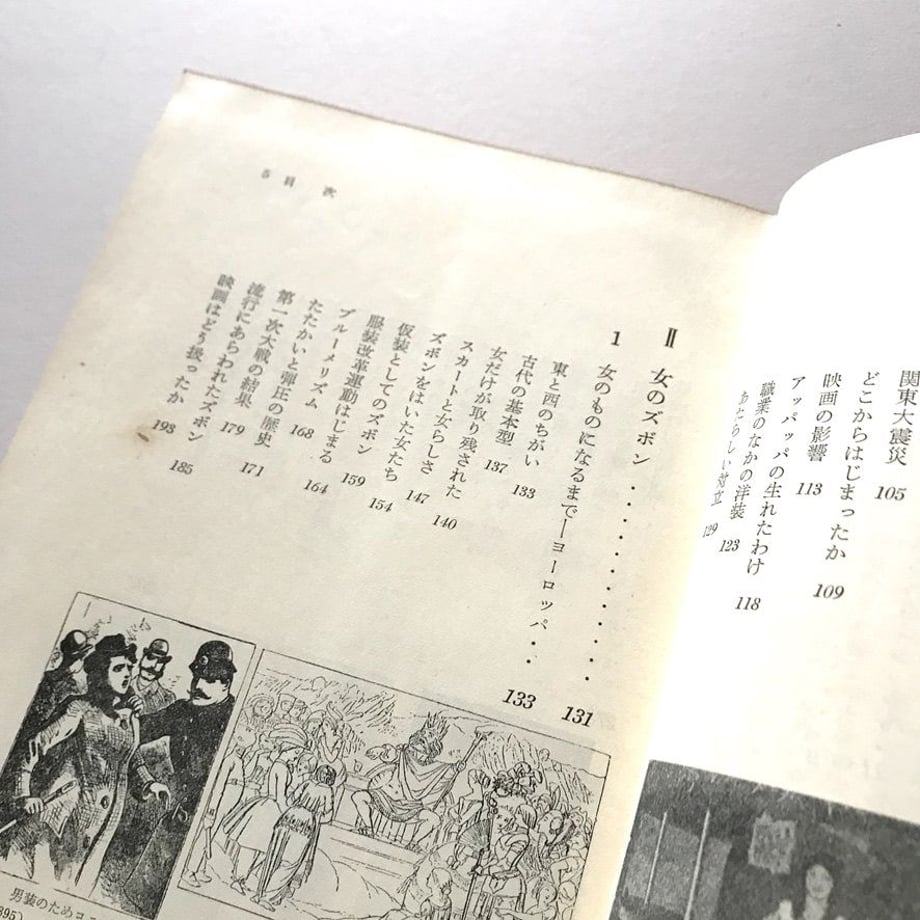 関東大震災 105
どこからはじまったか 109
映画の影響 113
アッパッパの生れたわけ 118
職業のなかの洋装 123
あたらしい対立 129
5 目 次
Ⅱ 女のズボン・・・・・・・・・・・・・ 131
1 女のものになるまで―ヨーロッパ・・ 133
東と西のちがい 133
古代の基本型 137
女だけが取り残された 140
スカートと女らしさ 147
ズボンをはいた女たち 154
仮装としてのズボン 159
服装改革運動はじまる 164
ブルーメリズム 168
たたかいと弾圧の歴史 171
第一次大戦の結果 179
流行にあらわれたズボン 185
映画はどう扱ったか 193
男装のため
895)